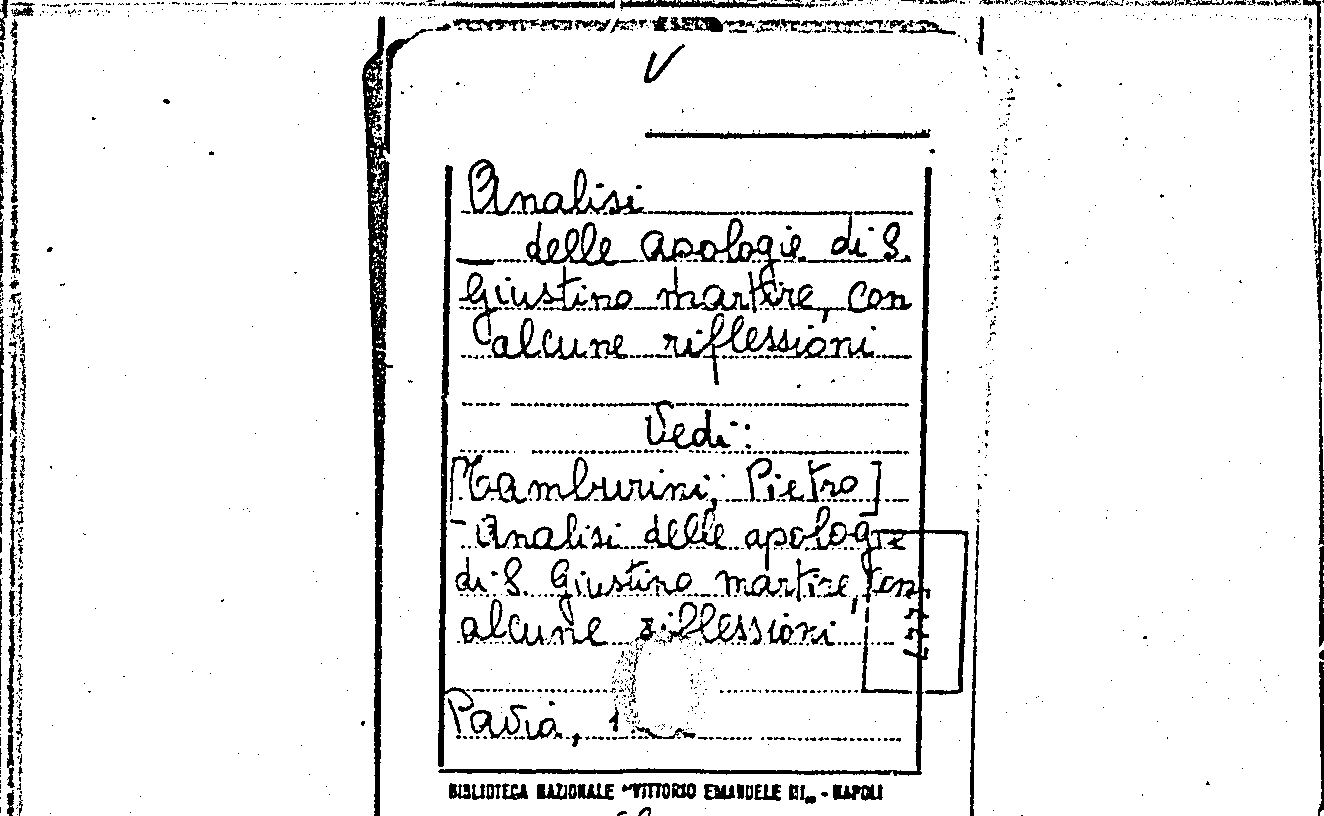 V
Analisi
_ delle apologie di S.
Giustino martire, con
alcune riflessioni
Vedi:
[Tamburini, Pietro]
- Analisi delle apologie
di S. Giustino martire, con
alcune riflessioni
Pavia, 1
BIBLIOTECA NAZIONALE "VITTORIO EMANUELE III„ - NAPOLI